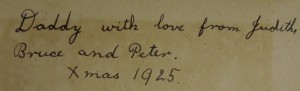 Daddy with love from Judith,
Bruce and Peter.
Xmas 1925.